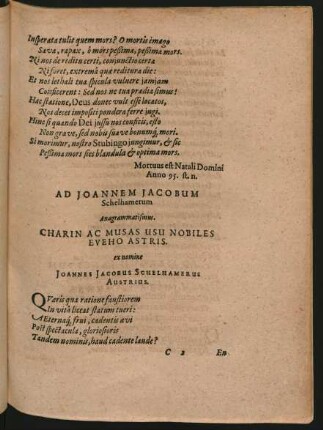 Insperata tulit quem mors? O mortis imago
Sæva, rapax, ô mors pessima, pessima mors.
Ni nos de reditu certi, conjunctio certa
Ni foret, extremâ quæ reditura die:
Et nos lethali tua spicula vulnere jamjam
Conficerent: Sed nos ne tua præda simus!
Hac statione, Deus donec vult esse locatos,
Nos decet impositi pondera ferre jugi.
Hinc si quando Dei jussu nos eunctis, esto
Non grave, sed nobis suave bonumq́, mori.
Si morimur, nostro Stubingo jungimur, & sic
Pessima mors fies blandula & optima mors.
Mortuus est Natali Domini
Anno 95. st. n.
AD JOANNEM JACOBUM
Schelhamerum
Anagrammatismus.
CHARIN AC MUSAS USU NOBILES
EVEHO ASTRIS.
ex nomine
JOANNES JACOBUS SCHELHAMERUS
AUSTRIUS.
QVæris quâ ratione faustiorem
In vitâ liceat statum tueri:
Æternaq́, frui, cadentis ævi
Post spectacula, gloriosioris
Tandem nominis, haud cadente laude?
C 2 En